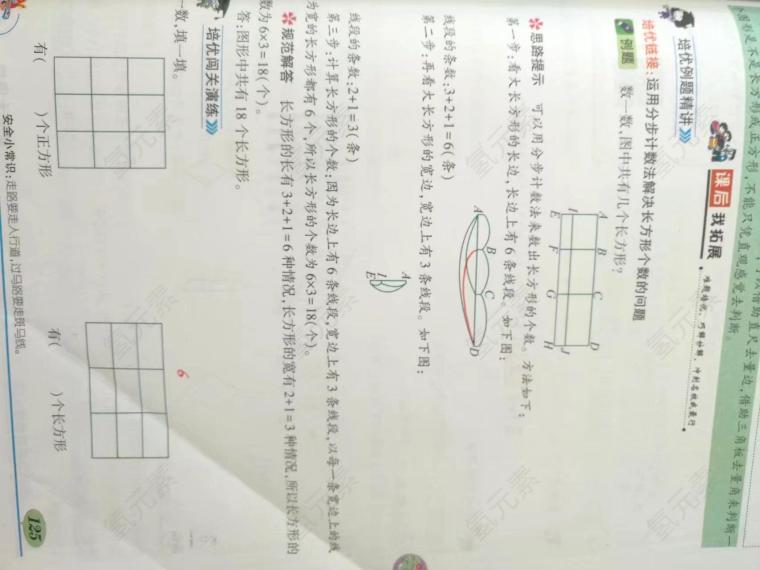 图形是不是长方形或正方形，不能只凭直观感觉去判断。
可以借助直尺去量边，借助三角板去量角来判断一
课后 我拓展
难题培优，巧解妙解，冲刺名校我要行
培优例题精讲
培优链接：运用分步计数法解决长方形个数的问题
例题 数一数，图中共有几个长方形？
A B C D
E F G H
I J
思路提示 可以用分步计数法来数出长方形的个数。方法如下：
第一步：看大长方形的长边，长边上有6条线段。如下图：
A B C D
线段的条数：3+2+1=6(条)
第二步：再看大长方形的宽边，宽边上有3条线段。如下图：
A
E
I
线段的条数：2+1=3(条)
第三步：计算长方形的个数：因为长边上有6条线段，宽边上有3条线段，以每一条宽边上的线
为宽的长方形都有6个，所以长方形的个数为6×3=18(个)。
规范解答 长方形的长有3+2+1=6种情况，长方形的宽有2+1=3种情况，所以长方形的
数为6×3=18(个)。
答：图形中共有18个长方形。
培优闯关演练
一数，填一填。
6
有( )个正方形 有( )个长方形
安全小常识：走路要走人行道，过马路要走斑马线。
125
氢元素